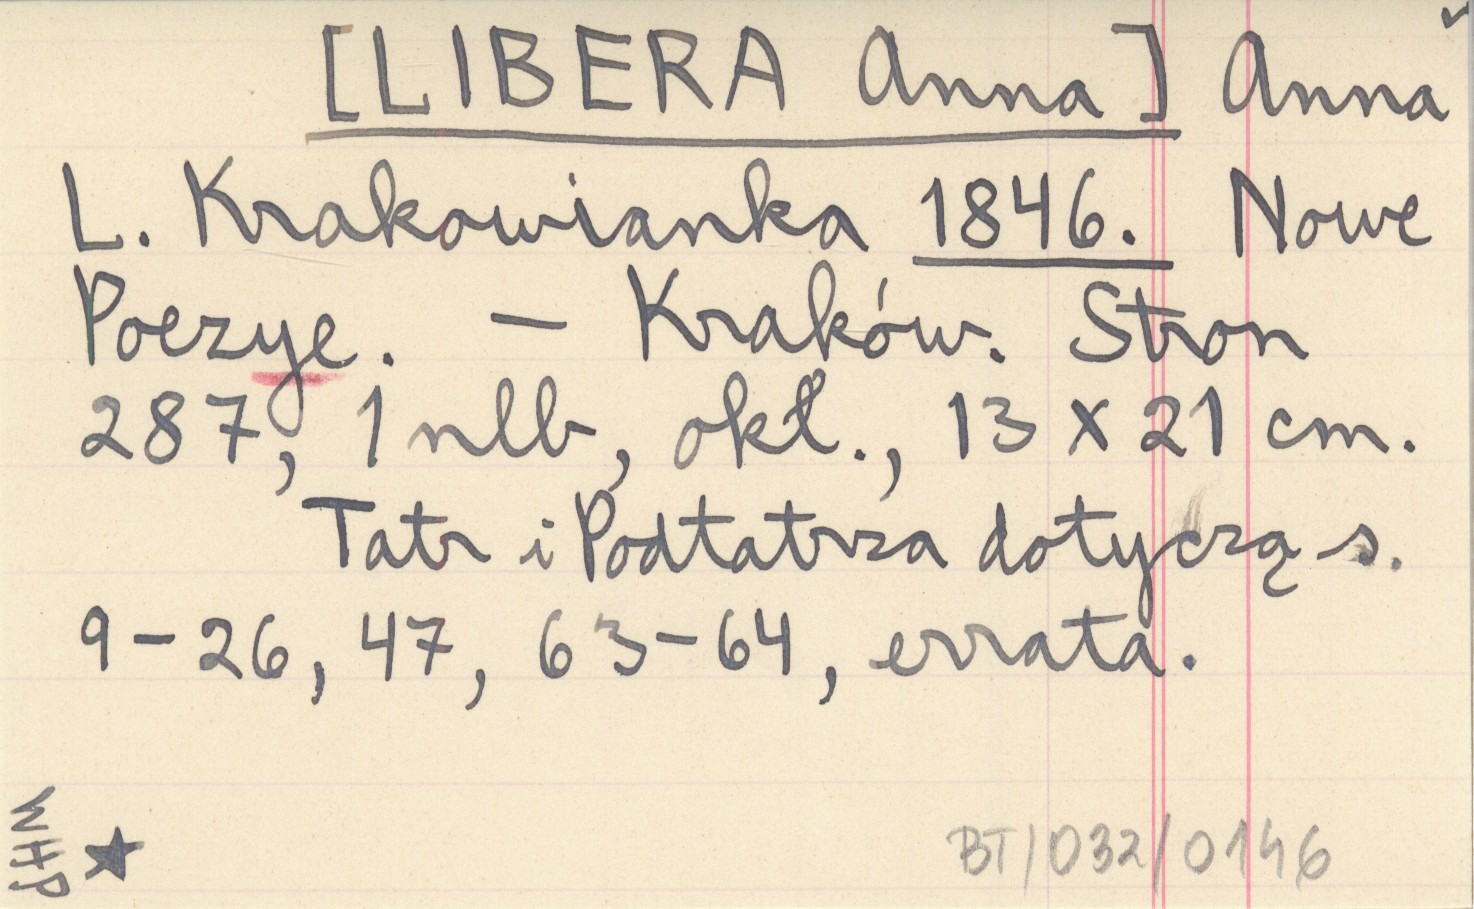 [LIBERA Anna] Anna
L. Krakowianka 1846. Nowe
Poezye. — Kraków. Stron
287, 1 nlb, okł., 13 x 21 cm.
Tatr i Podtatrza dotyczą s.
9-26, 47, 63-64, errata.
WHP
BT/032/0146